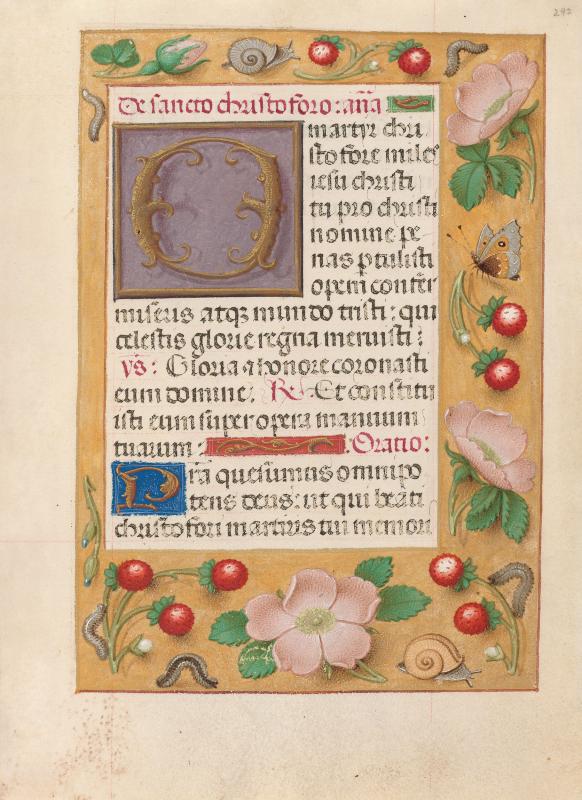 242
De sancto christoforo: añã
O
martyr chri
stofore miles
iesu christi
tu pro christi
nomine pe
nas ꝑtulisti
opem confer
miseris atqꝫ mundo tristi: qui
celestis glorie regna meruisti:
vs: Gloria ⁊ honore coronasti
eum domine: R. Et constitu
isti eum super opera manuum
tuarum: Oratio:
Pr̃a quesumus omnipo
tens deus: ut qui beati
christofori martyris tui memori